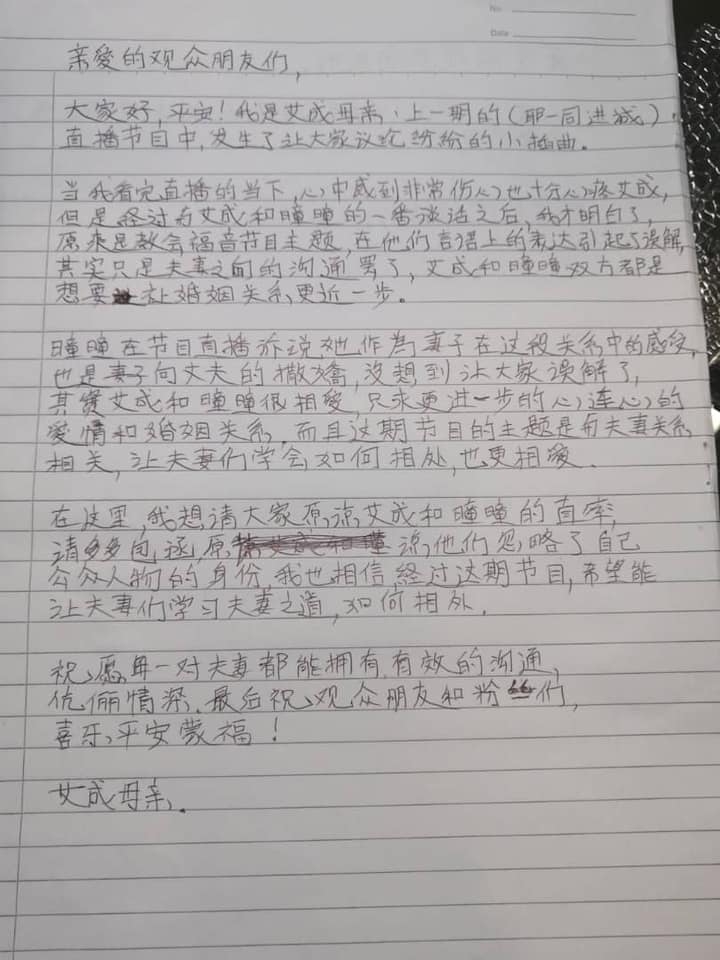 No.
Date
亲爱的观众朋友们,
大家好,平安!我是艾成母亲、上一期的(耶一同进城)
直播节目中,发生了让大家议论纷纷的小插曲。
当我看完直播的当下,心中感到非常伤心也十分心疼艾成,
但是经过与艾成和瞳瞳的一番谈话之后,我才明白了,
原来是教会福音节目主题,在他们言语上的表达引起了误解,
其实只是夫妻之间的沟通罢了,艾成和瞳瞳双方都是
想要让婚姻关系更近一步。
瞳瞳在节目直播诉说她作為妻子在这段关系中的感受,
也是妻子向丈夫的撒嬌,沒想到让大家误解了,
其實艾成和瞳瞳很相爱,只求更进一步的心连心的
爱情和婚姻关系,而且这期节目的主题是与夫妻关系
相关,让夫妻们学会如何相处,也更相爱.
在这里,我想请大家原谅艾成和瞳瞳的直率,
请多多包拯,原谅他们忽略了自己
公众人物的身份,我也相信经过这期节目,希望能
让夫妻们学习夫妻之道,如何相处.
祝愿每一对夫妻都能拥有有效的沟通,
伉俪情深.最后祝观众朋友和粉丝们,
喜乐平安蒙福!
艾成母亲.